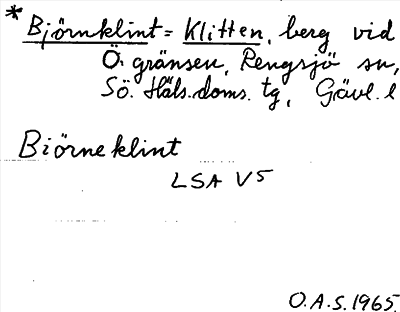 * Björnklint = Klitten, berg vid
Ö. gränsen, Rengsjö sn,
Sö. Häls. doms. tg, Gävl. l
Biörneklint
LSA V5
O.A.S. 1965.